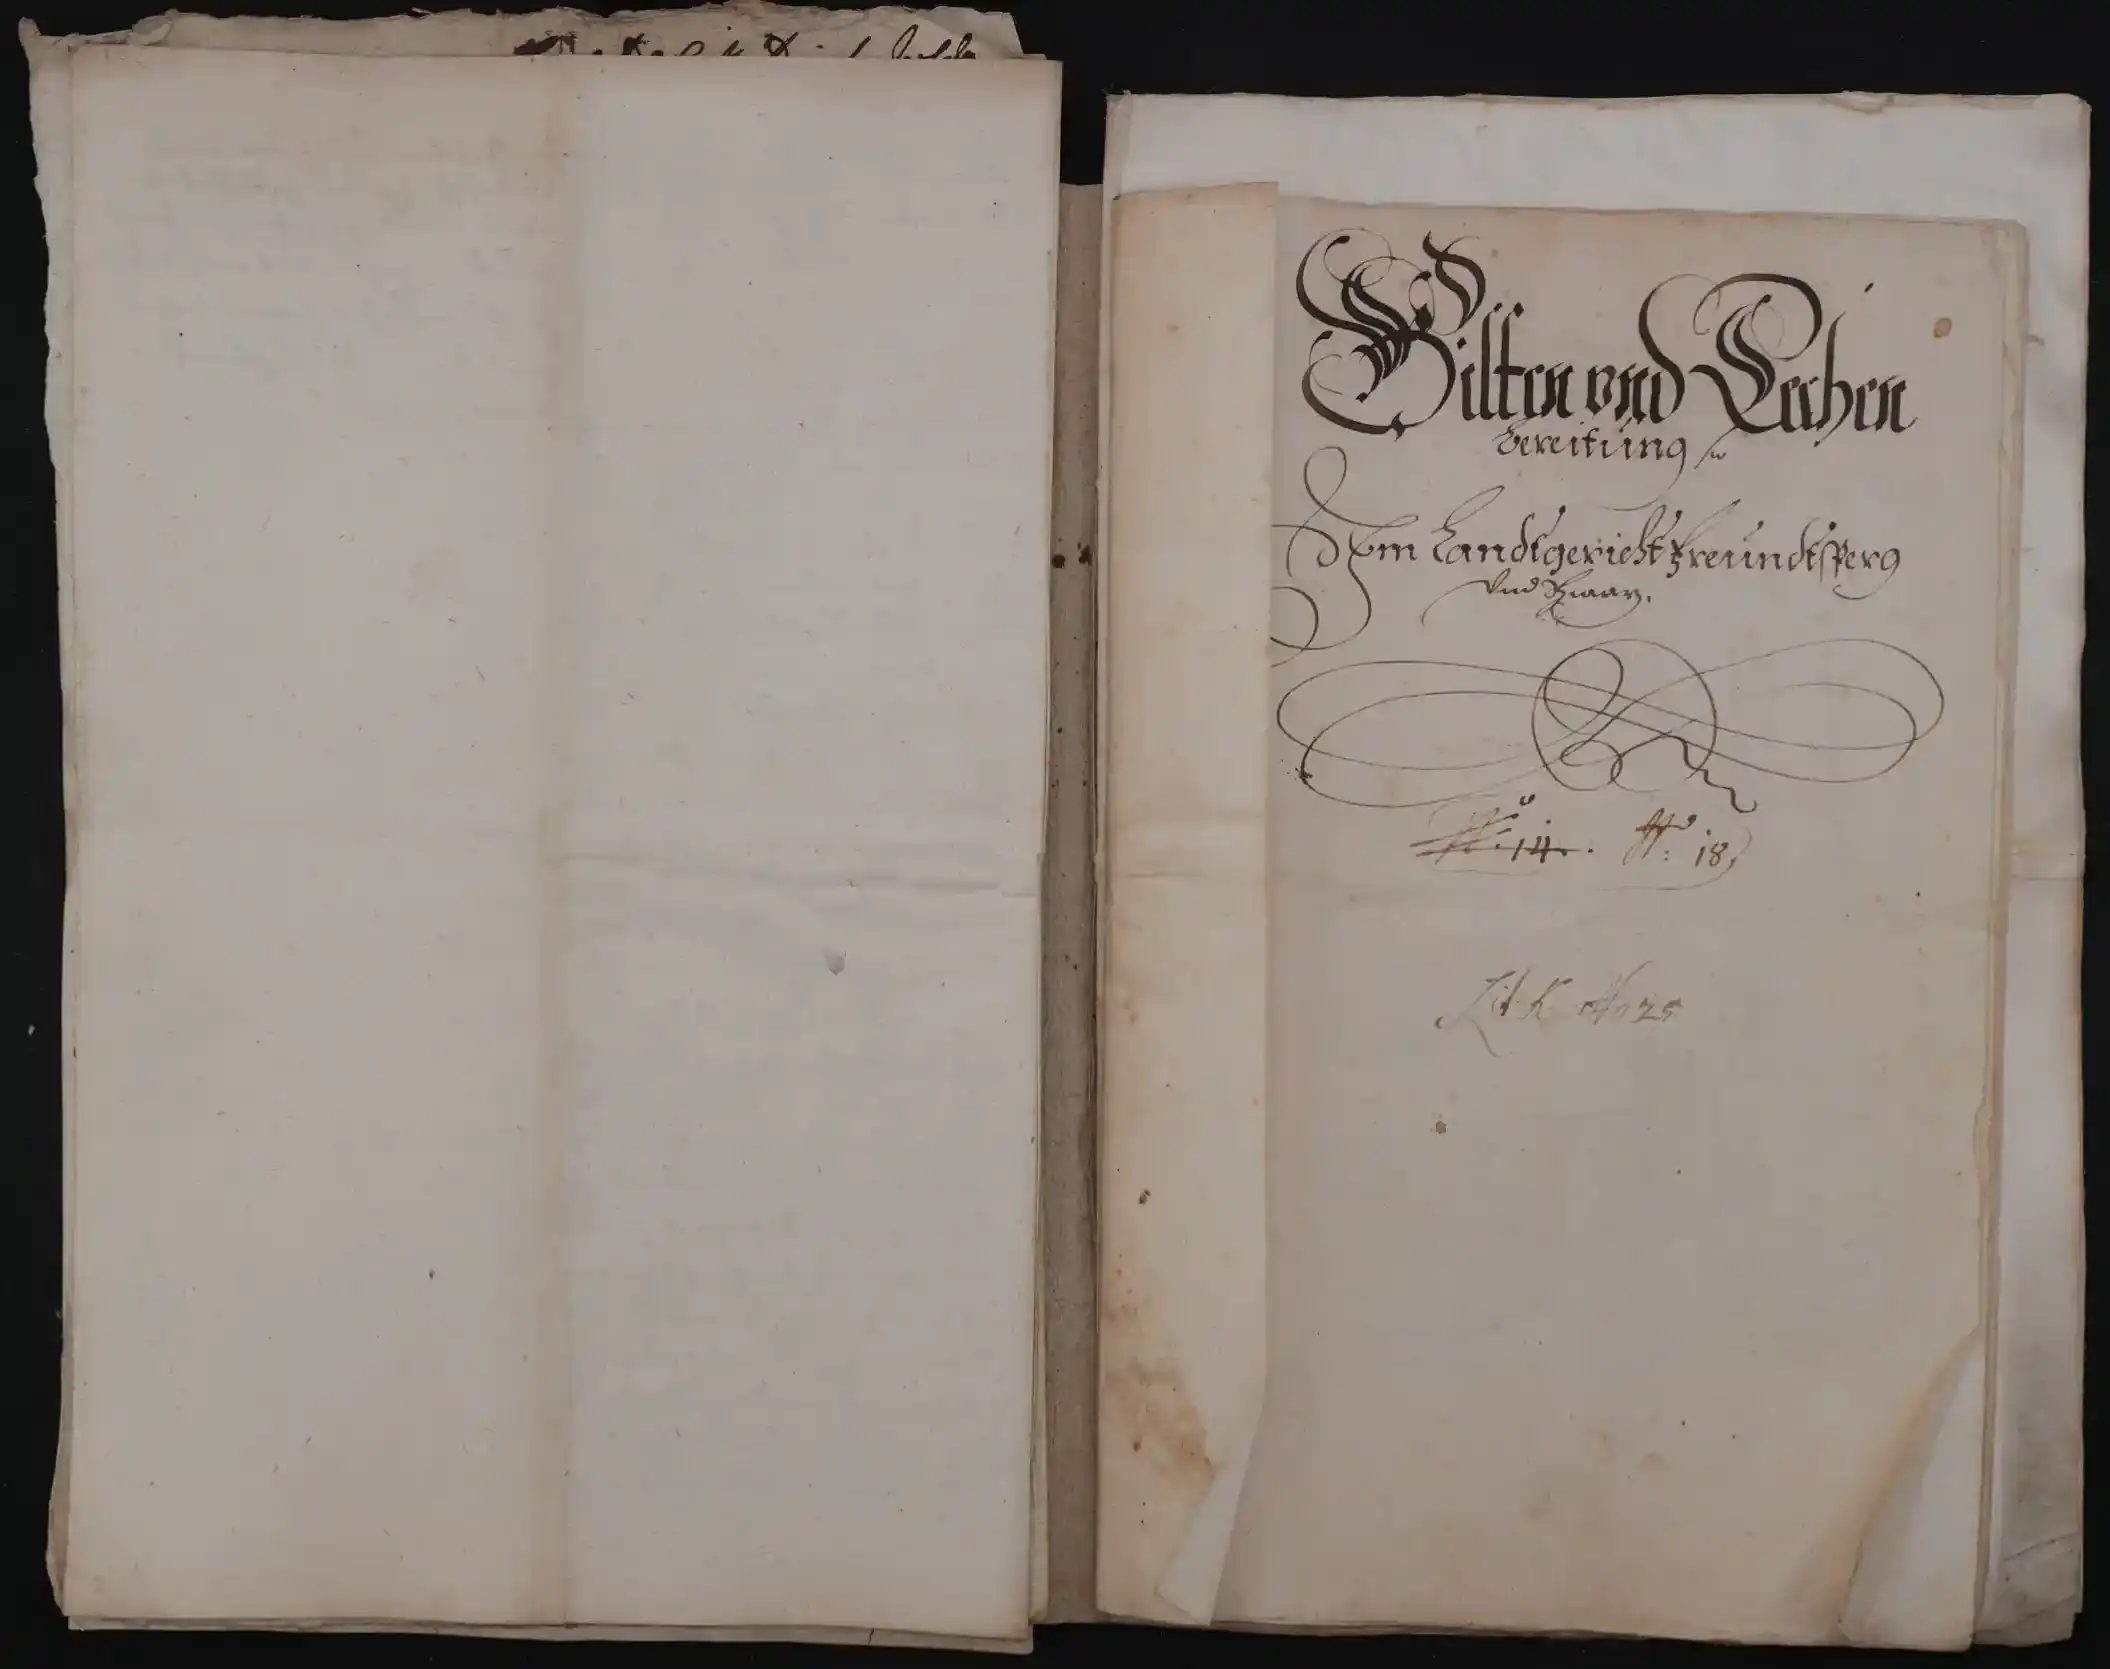 Gilten vnd Lechen
bereitung
Im Landtgericht Freundtsperg
Vnd Schwaz.
No. 14. No: 18.
Lit. K No 25